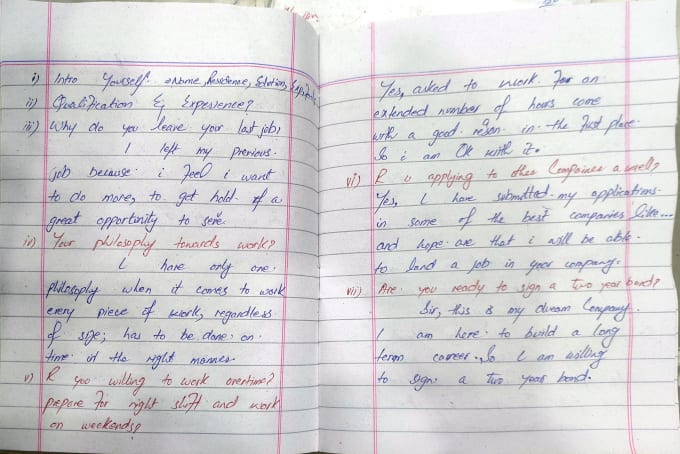 i) Intro Yourself. Name, Residence,
ii) Qualification & Experience?
iii) Why do you leave your last job,
I left my previous.
job because. i feel i want
to do more, to get hold of a
great opportunity to serve.
iv) Your philosophy towards work?
I have only one.
philosophy when it comes to work
every piece of work, regardless
of size; has to be done. on.
time. in the right manner.
v) R you willing to work overtime?
prepare for night shift and work
on weekends?
Yes, asked to work for an
extended number of hours come
with a good. reson. in. the first place.
So i am Ok with it.
vi) R u applying to other Companies a well?
Yes, I have submitted my applications.
in some of the best companies like...
and hope. are that i will be able.
to land a job in your company.
vii) Are. you ready to sign a two year bond?
Sir, this is my dream Company.
I am here. to build a long
term career. So I am willing
to sign. a two year bond.